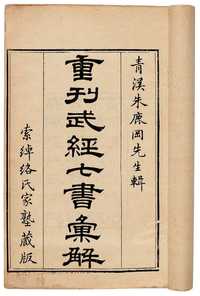 青溪朱鹿岡先生輯
重刊武經七書彙解
索綽絡氏家塾藏版